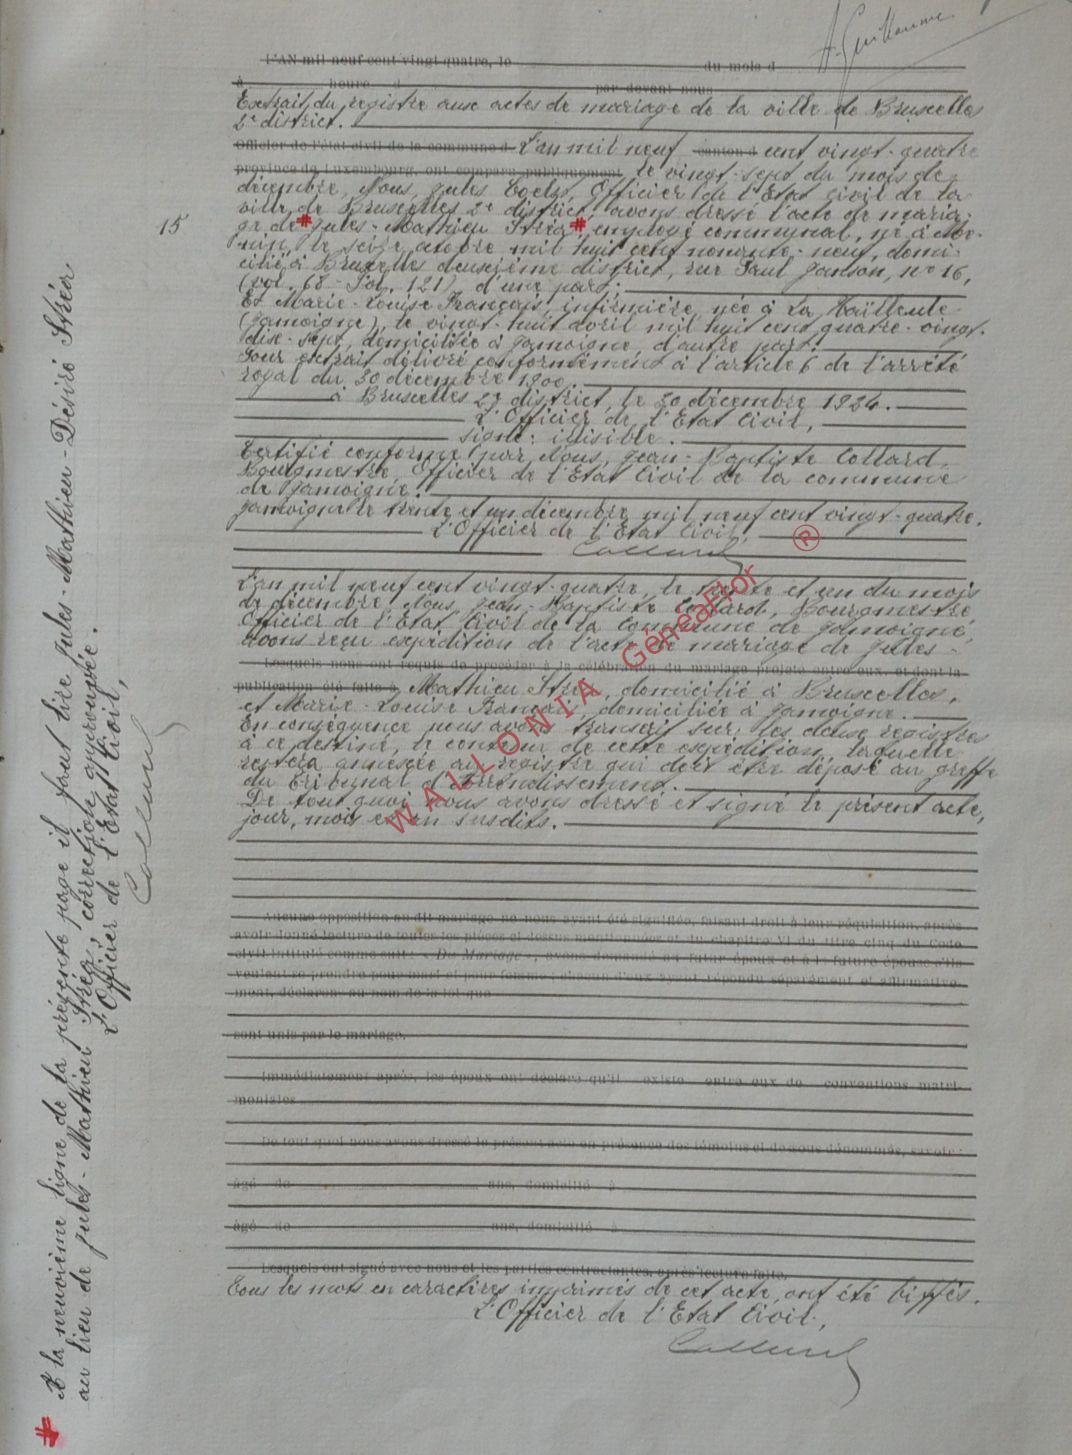 A. Guillaume
L'AN mil neuf cent vingt quatre, le du mois d
à heure d par devant nous
Extrait du registre aux actes de mariage de la ville de Bruxelles
2e district.
Officier de l'état civil de la commune d L'an mil neuf canton d cent vingt-quatre
province de Luxembourg, ont comparu publiquement le vingt-sept du mois de
décembre, Nous, Jules Officier de l'Etat Civil de la
ville de Bruxelles 2e district, avons dressé l'acte de maria-
15
ge de # Jules-Mathieu # employé communal, né à
le seize octobre mil huit cent nonante-neuf, domi-
cilié à Bruxelles deuxième district, rue Paul Janson, no 16,
(vol. 68 - fol. 121), d'une part;
Et Marie-Louise François, infirmière, née à La Haïlleule
(Jamoigne), le vingt-huit avril mil huit cent quatre-vingt-
dix-sept, domiciliée à Jamoigne, d'autre part.
Pour extrait délivré conformément à l'article 6 de l'arrêté
royal du 30 décembre 1900.
à Bruxelles 2e district, le 30 décembre 1924.
L'Officier de l'Etat Civil,
signé: illisible.
Certifié conforme par Nous, Jean-Baptiste Collard,
Bourgmestre, Officier de l'Etat Civil de la commune
de Jamoigne.
Jamoigne le trente et un décembre mil neuf cent vingt-quatre.
L'Officier de l'Etat Civil,
Collard
L'an mil neuf cent vingt-quatre, le trente et un du mois
de décembre, Nous, Jean-Baptiste Collard, Bourgmestre
Officier de l'Etat Civil de la Commune de Jamoigne,
avons reçu expédition de l'acte de mariage de Jules-
Lesquels nous ont requis de procéder à la célébration du mariage projeté entre eux, et dont la
publication été faite à Mathieu domicilié à Bruxelles,
et Marie-Louise François, domiciliée à Jamoigne.
En conséquence nous avons transcrit sur les deux registres
à ce destiné, le contenu de cette expédition, laquelle
restera annexée au registre qui doit être déposé au greffe
du Tribunal d'Arrondissement.
De tout quoi nous avons dressé et signé le présent acte,
jour, mois et an susdits.
Aucune opposition au dit mariage ne nous ayant été signifiée, faisant droit à leur réquisition, après
avoir donné lecture de toutes les pièces ci-dessus mentionnées et du chapitre VI du titre cinq du Code
civil intitulé comme suit: « Du Mariage », avons demandé au futur époux et à la future épouse s'ils
veulent se prendre pour mari et pour femme, chacun d'eux ayant répondu séparément et affirmative-
ment, déclarons au nom de la loi que
sont unis par le mariage.
Immédiatement après, les époux ont déclaré qu'il existe entre eux de conventions matri-
moniales
De tout quoi nous avons dressé le présent acte en présence des témoins ci-dessous dénommés, savoir:
âgé de ans, domicilié à
âgé de ans, domicilié à
Lesquels ont signé avec nous et les parties contractantes, après lecture faite.
Tous les mots en caractères imprimés de cet acte, ont été biffés.
L'Officier de l'Etat Civil,
Collard
# A la neuvième ligne de la présente page il faut lire Jules-Mathieu-Désiré
au lieu de Jules-Mathieu correction approuvée.
L'Officier de l'Etat Civil,
Collard
WALLONIA GénéaFlor ®